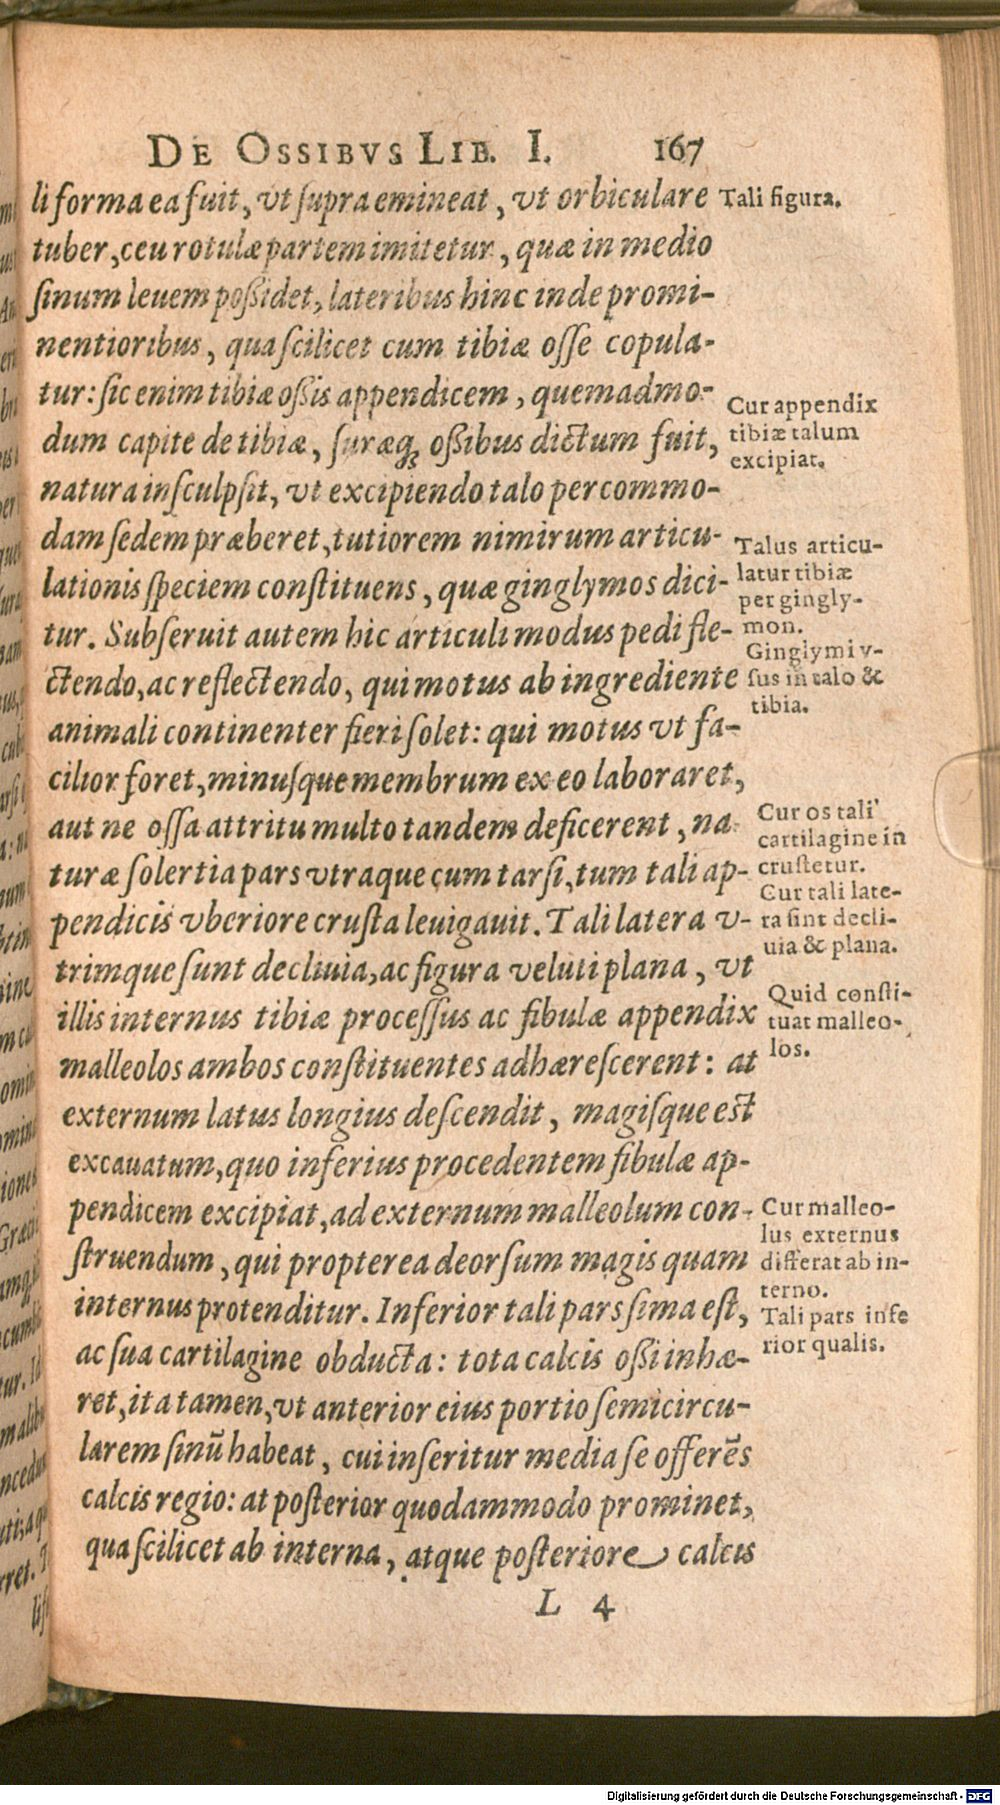 DE OSSIBVS LIB. I. 167
li forma ea fuit, vt supra emineat, vt orbiculare
tuber, ceu rotulæ partem imitetur, quæ in medio
sinum leuem possidet, lateribus hinc inde promi-
nentioribus, qua scilicet cum tibiæ osse copula-
tur: sic enim tibiæ ossis appendicem, quemadmo-
dum capite de tibiæ, suræq; ossibus dictum fuit,
natura insculpsit, vt excipiendo talo per commo-
dam sedem præberet, tutiorem nimirum articu-
lationis speciem constituens, quæ ginglymos dici-
tur. Subseruit autem hic articuli modus pedi fle-
ctendo, ac reflectendo, qui motus ab ingrediente
animali continenter fieri solet: qui motus vt fa-
cilior foret, minusque membrum ex eo laboraret,
aut ne ossa attritu multo tandem deficerent, na-
turæ solertia pars vtraque cum tarsi, tum tali ap-
pendicis vberiore crusta leuigauit. Tali latera v-
trimque sunt decliuia, ac figura veluti plana, vt
illis internus tibiæ processus ac fibulæ appendix
malleolos ambos constituentes adhærescerent: at
externum latus longius descendit, magisque est
excauatum, quo inferius procedentem fibulæ ap-
pendicem excipiat, ad externum malleolum con-
struendum, qui propterea deorsum magis quam
internus protenditur. Inferior tali pars sima est,
ac sua cartilagine obducta: tota calcis ossi inhæ-
ret, ita tamen, vt anterior eius portio semicircu-
larem sinū habeat, cui inseritur media se offerēs
calcis regio: at posterior quodammodo prominet,
qua scilicet ab interna, atque posteriore calcis
L 4
Tali figura.
Cur appendix
tibiæ talum
excipiat.
Talus articu-
latur tibiæ
per gingly-
mon.
Ginglymi v-
sus in talo &
tibia.
Cur os tali
cartilagine in
crustetur.
Cur tali late-
ra sint decli-
uia & plana.
Quid consti-
tuat malleo-
los.
Cur malleo-
lus externus
differat ab in-
terno.
Tali pars infe
rior qualis.
Digitalisierung gefördert durch die Deutsche Forschungsgemeinschaft - DFG